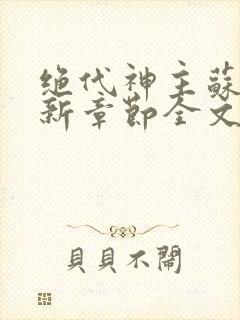 绝代神主蘇
新章節全文
貝貝不鬧